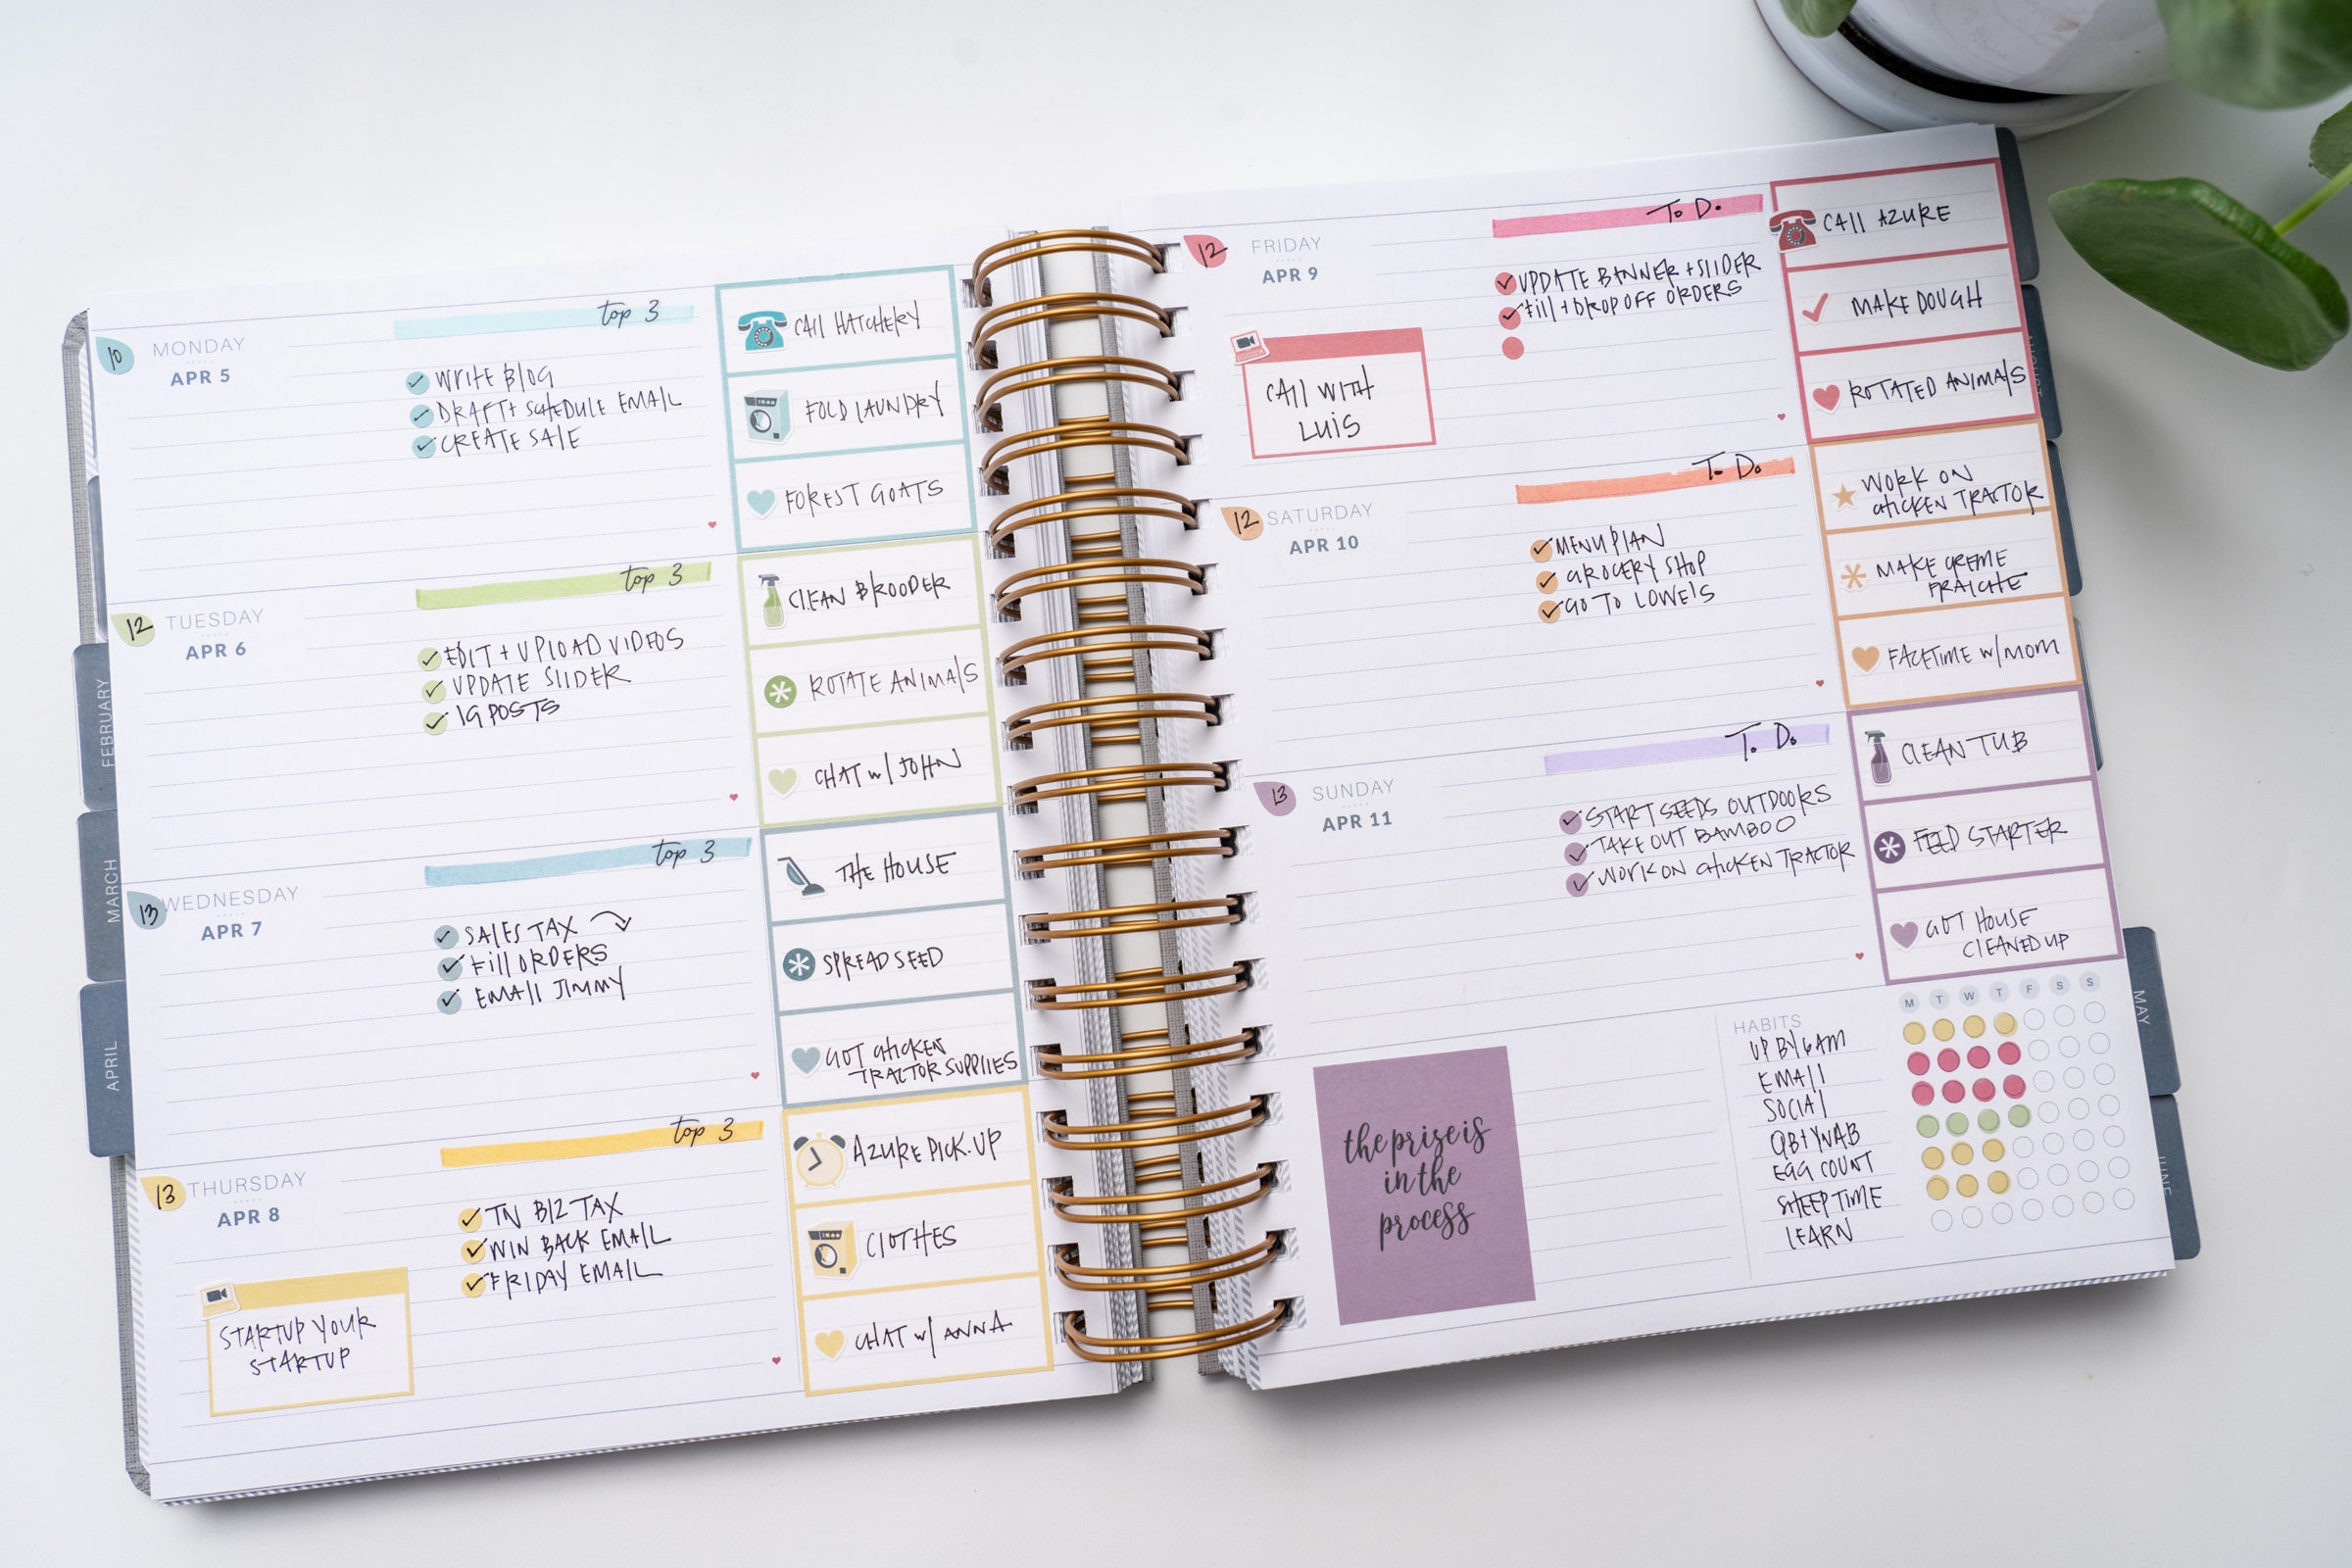 top 3
10
MONDAY
APR 5
WRITE BLOG
DRAFT + SCHEDULE EMAIL
CREATE SALE
CALL HATCHERY
FOLD LAUNDRY
FOREST GOATS
top 3
12
TUESDAY
APR 6
EDIT + UPLOAD VIDEOS
UPDATE SLIDER
IG POSTS
CLEAN BROODER
ROTATE ANIMALS
CHAT w/ JOHN
top 3
13
WEDNESDAY
APR 7
SALES TAX
FILL ORDERS
EMAIL JIMMY
THE HOUSE
SPREAD SEED
GOT CHICKEN
TRACTOR SUPPLIES
top 3
13
THURSDAY
APR 8
TN BIZ TAX
WIN BACK EMAIL
FRIDAY EMAIL
STARTUP YOUR
STARTUP
AZURE PICK-UP
CLOTHES
CHAT w/ ANNA
FEBRUARY
MARCH
APRIL
To Do
12
FRIDAY
APR 9
UPDATE BANNER + SLIDER
FILL + DROP OFF ORDERS
CALL WITH
LUIS
CALL AZURE
MAKE DOUGH
ROTATED ANIMALS
To Do
12
SATURDAY
APR 10
MENU PLAN
GROCERY SHOP
GO TO LOWE'S
WORK ON
CHICKEN TRACTOR
MAKE CREME
FRAICHE
FACETIME w/ MOM
To Do
13
SUNDAY
APR 11
START SEEDS OUTDOORS
TAKE OUT BAMBOO
WORK ON CHICKEN TRACTOR
CLEAN TUB
FEED STARTER
GOT HOUSE
CLEANED UP
the prize is
in the
process
M T W T F S S
HABITS
UP BY 6AM
EMAIL
SOCIAL
QB + YNAB
EGG COUNT
SHEEP TIME
LEARN
MAY
JUNE